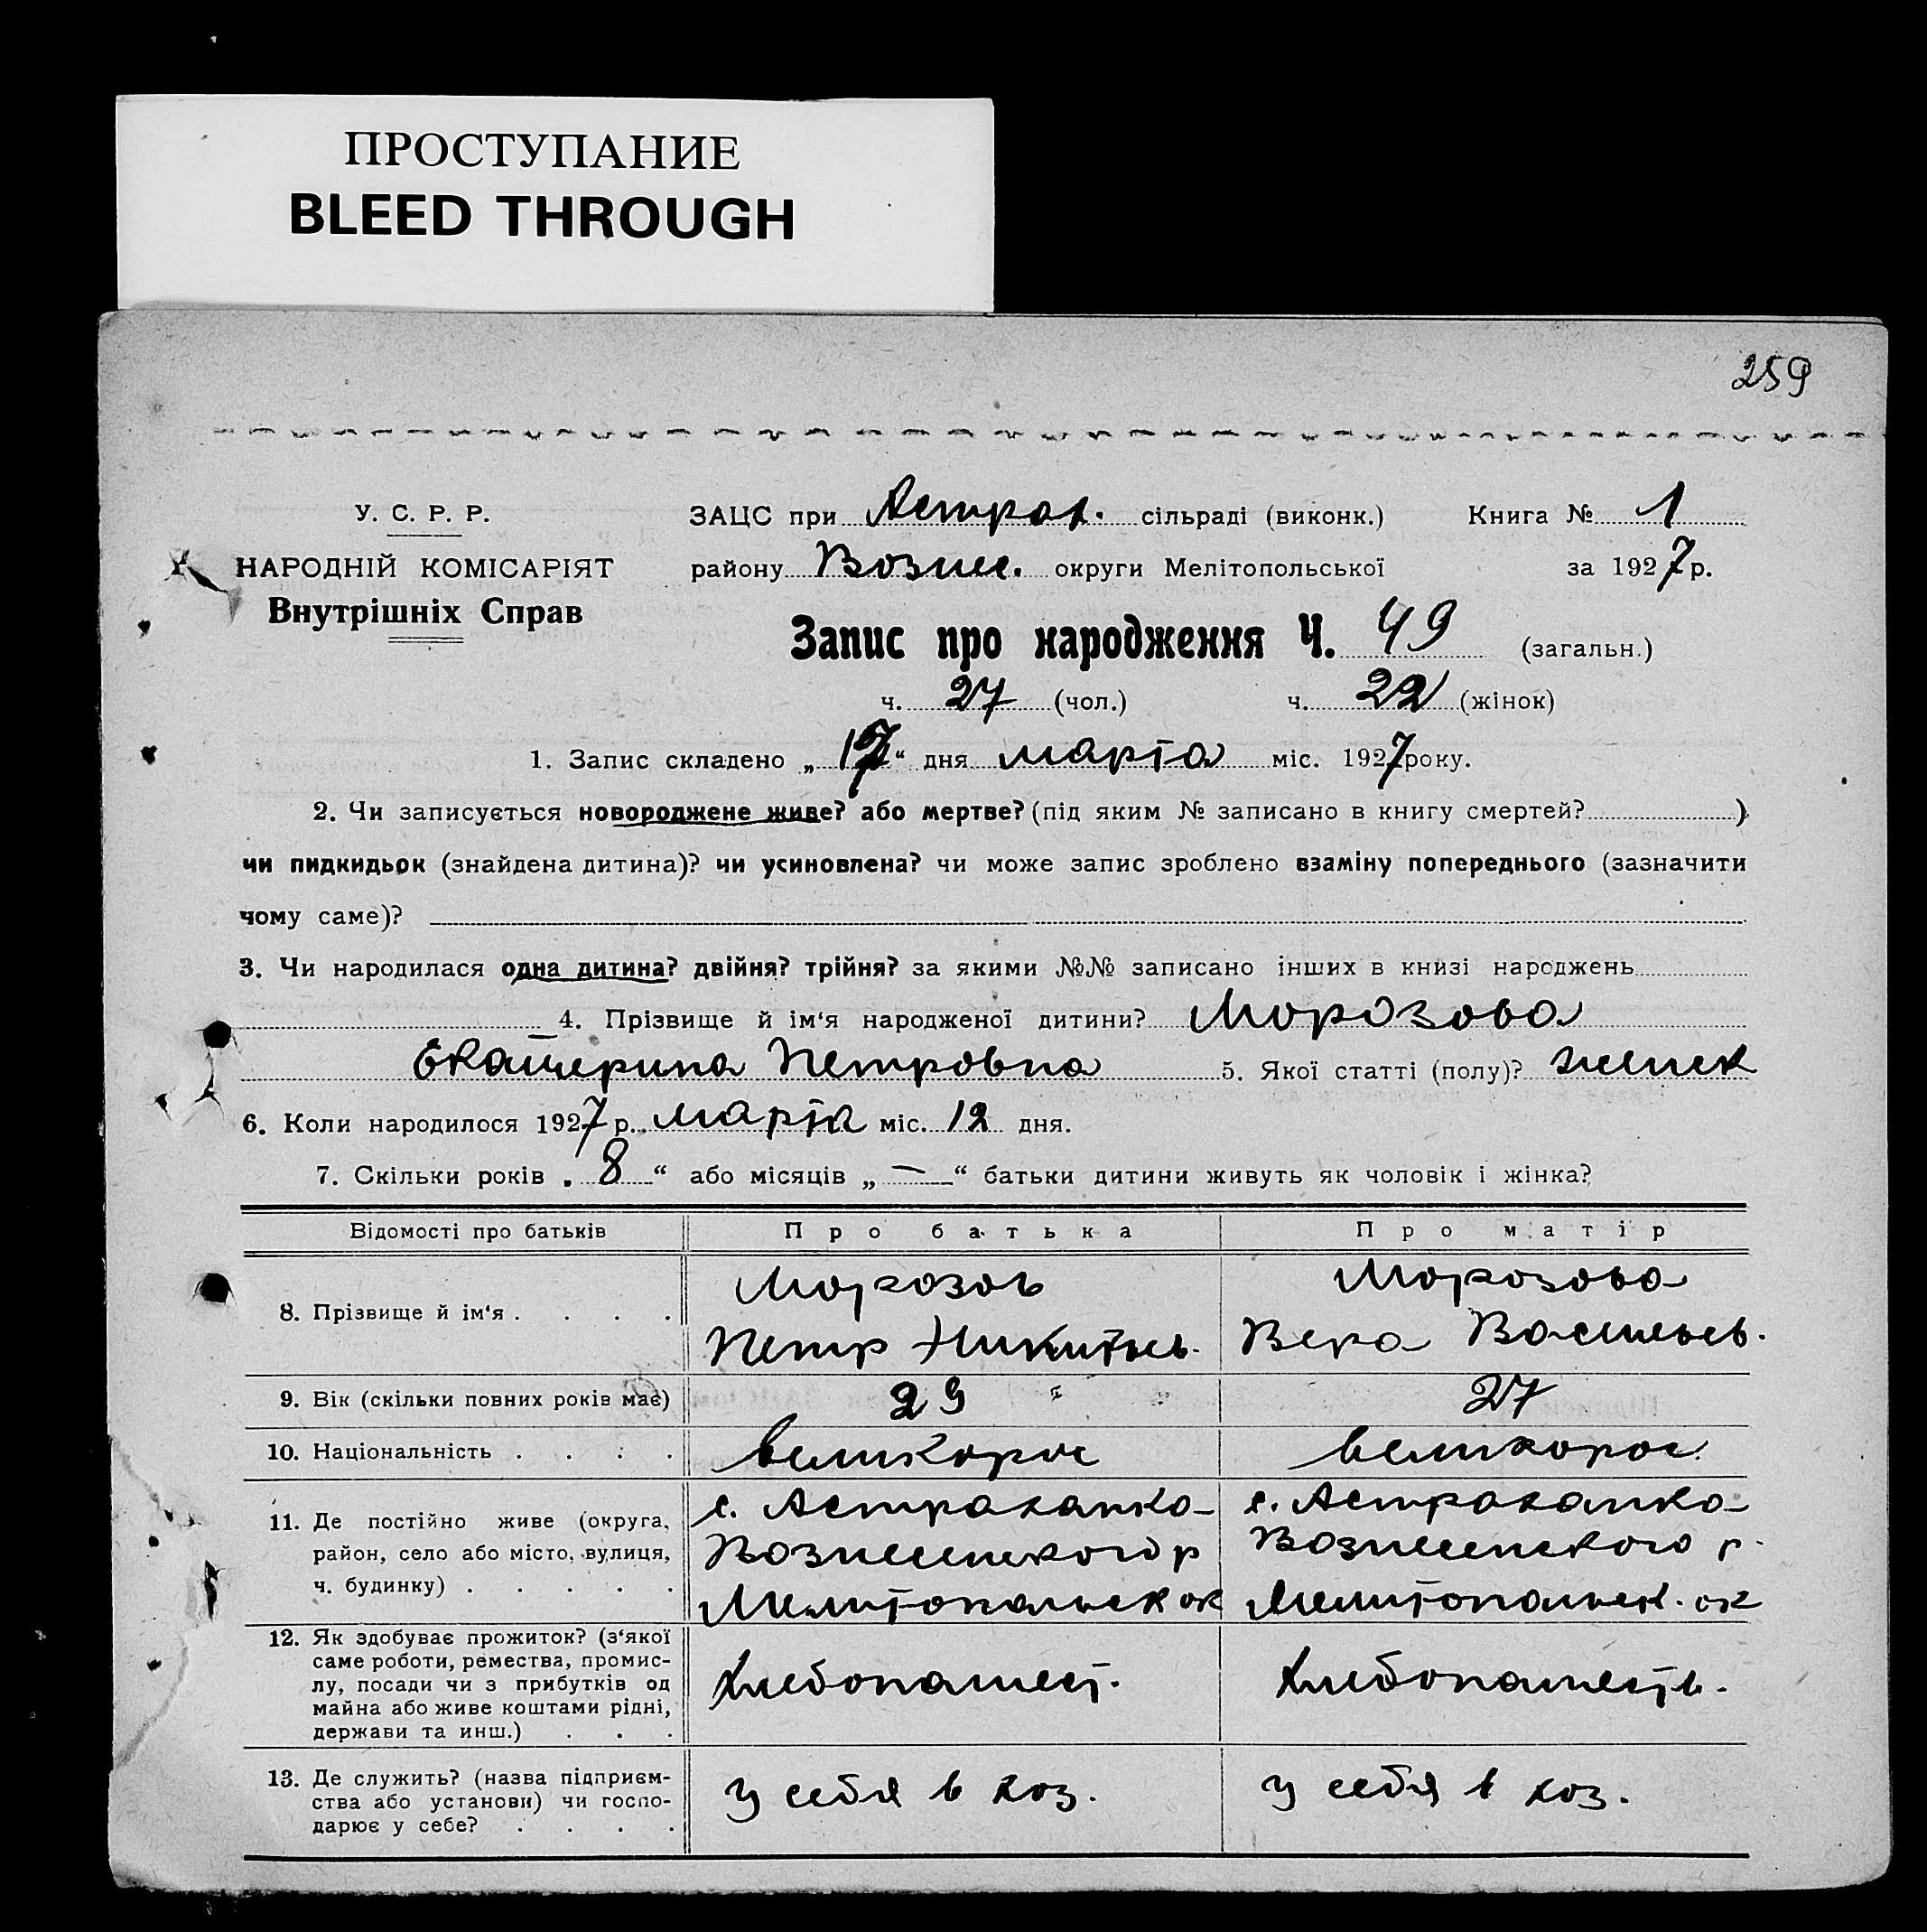 ПРОСТУПАНИЕ
BLEED THROUGH
259
У. С. Р. Р.
НАРОДНІЙ КОМІСАРІЯТ
Внутрішніх Справ
ЗАЦС при Астрах. сільраді (виконк.) Книга № 1
району Вознес. округи Мелітопольської за 1927 р.
Запис про народження Ч. 49 (загальн.)
ч. 27 (чол.) ч. 22 (жінок)
1. Запис складено „17“ дня марта міс. 1927 року.
2. Чи записується новороджене живе? або мертве? (під яким № записано в книгу смертей? )
чи пидкидьок (знайдена дитина)? чи усиновлена? чи може запис зроблено взаміну попереднього (зазначити
чому саме)?
3. Чи народилася одна дитина? двійня? трійня? за якими №№ записано інших в книзі народжень
4. Прізвище й ім‘я народженої дитини? Морозова
Екатерина Петровна 5. Якої статті (полу)? женск
6. Коли народилося 1927 р. марта міс. 12 дня.
7. Скільки років „ 8 “ або місяців „ — “ батьки дитини живуть як чоловік і жінка?
Відомості про батьків Про батька Про матір
8. Прізвище й ім‘я . . . .
Морозов
Петр Никитьев.
Морозова
Вера Васильев.
9. Вік (скільки повних років має) 29 27
10. Національність . . . . великорос великорос.
11. Де постійно живе (округа,
район, село або місто, вулиця,
ч. будинку) . . . . .
с. Астраханка-
Вознесенского р
Мелитопольск ок
с. Астраханка-
Вознесенского р.
Мелитопольск. ок
12. Як здобуває прожиток? (з‘якої
саме роботи, ремества, промис-
лу, посади чи з прибутків од
майна або живе коштами рідні,
держави та инш.) . . .
хлебопашест.
хлебопашеств.
13. Де служить? (назва підприєм-
ства або установи) чи госпо-
дарює у себе? . . . .
у себя в хоз.
у себя в хоз.